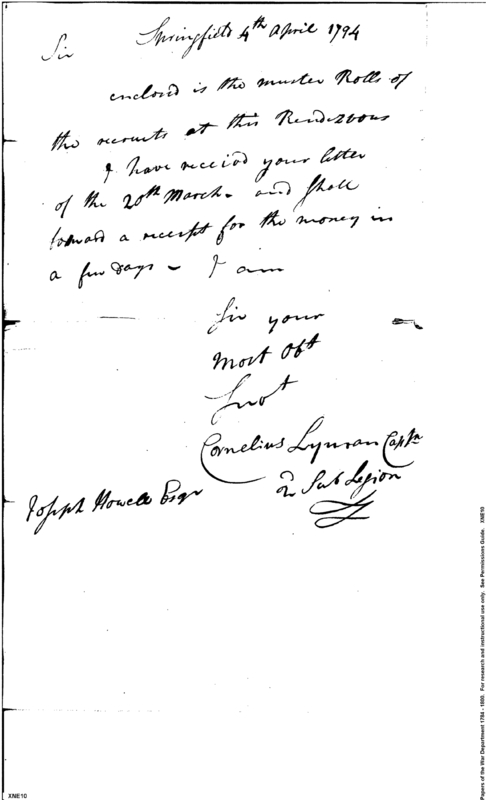 Springfield 4th April 1794
Sir
enclosd is the muster Rolls of
the recruits at this Rendezvous
I have receivd your letter
of the 20th March - and shall
forward a receipt for the money in
a few days - I am
Sir your
most Obt
Svnt
Cornelius Lyman Captn
2 Sub Legion
Joseph Howell Esqr
XNE10
Papers of the War Department 1784 - 1800. For research and instructional use only. See Permissions Guide. XNE10